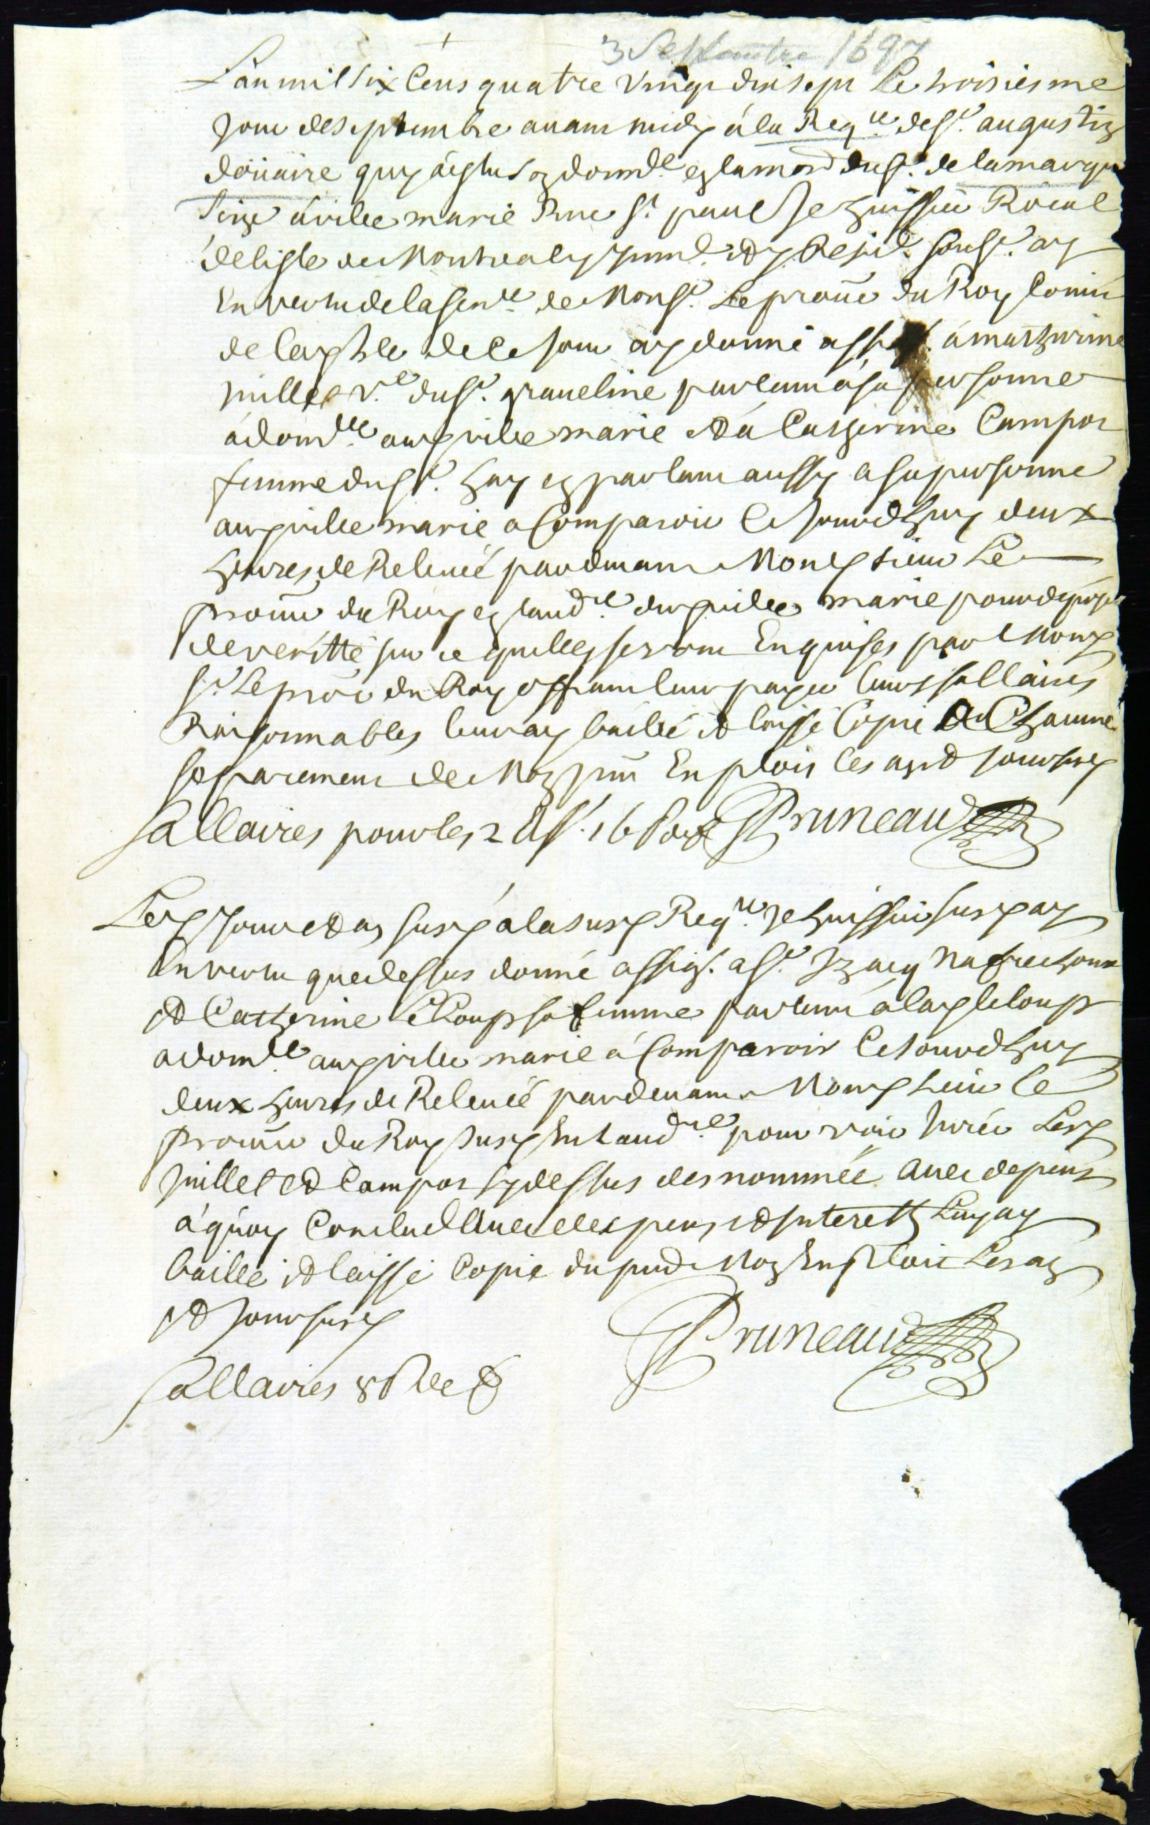 3 Septembre 1697
L'an mil six Cens quatre vingt dix sept Le troisiesme
Jour de septembre avant midy a la Req.te de s.r augustin
douaire quy a eslu son domi.le en la mon du s.r de la marque
sise a ville marie Rue s.t paul Je huissier Roial
de l'isle de Montreal y imm.le et y Resid.t souss.é ay
En vertu de la sen.ce de Mons.r Le procur du Roy Commis
de ce jour ay donné assi a mathurine
Juillet v.e du s.r graveline parlant a sa personne
a domi.lle aud ville marie et a Catherine Campot
femme du s.r hay en parlant aussy a sa personne
aud ville marie a Comparoir Ce Jourdhuy deux
heures de Relevée pardevant Monsieur Le
procur du Roy en laud.ce dud ville marie pour deposer
de veritté sur ce quelles seront Enquises par Mond
s.r Le pror du Roy offrant leur payer leurs sallaires
Raisonnables leur ay baillé et laissé Copie A Chaune
separement de Mon pnt Exploit les an et jour susd
sallaires pour les 2 16 s Pruneau
Led Jour et an susd a la susd Req.te Je huissier susd ay
En vertu que dessus donné assign. a s.r Izacq Nafrechoux
et Catherine Le Loup sa femme parlant a lad le loup
a domi.lle aud ville marie a Comparoir Ce Jourdhuy
deux heures de Relevée pardevant Mond sieur le
procur du Roy susd En laud.ce pour voir Jurer Lesd
Juillet et Campot sy dessus desnommée avec depens
a quoy Conclud avec despens et Interetz Luy ay
baillé et laissé Copie du pnt Mon Exploit Les an
et Jour susd
Pruneau
sallaires 8 s